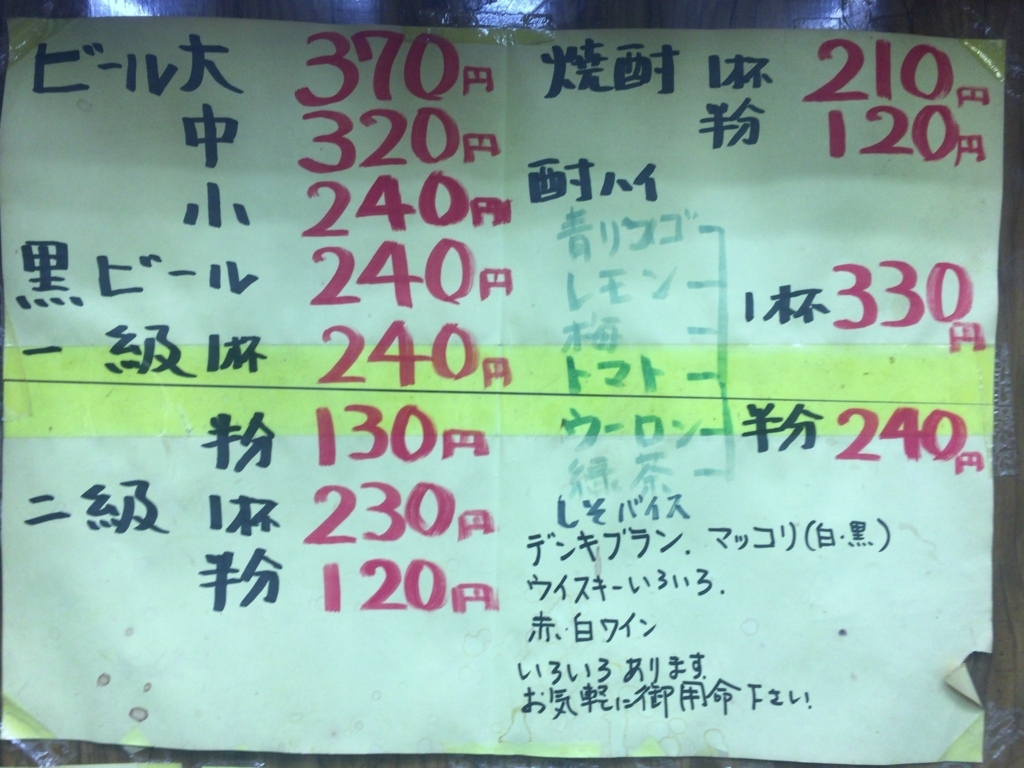 ビール大 370円
中 320円
小 240円
黒ビール 240円
一級 1杯 240円
半分 130円
二級 1杯 230円
半分 120円
焼酎 1杯 210円
半分 120円
酎ハイ
青リンゴ
レモン
梅
トマト
ウーロン
緑茶
1杯 330円
半分 240円
しそバイス
デンキブラン. マッコリ(白・黒)
ウイスキーいろいろ.
赤、白ワイン
いろいろあります.
お気軽に御用命下さい